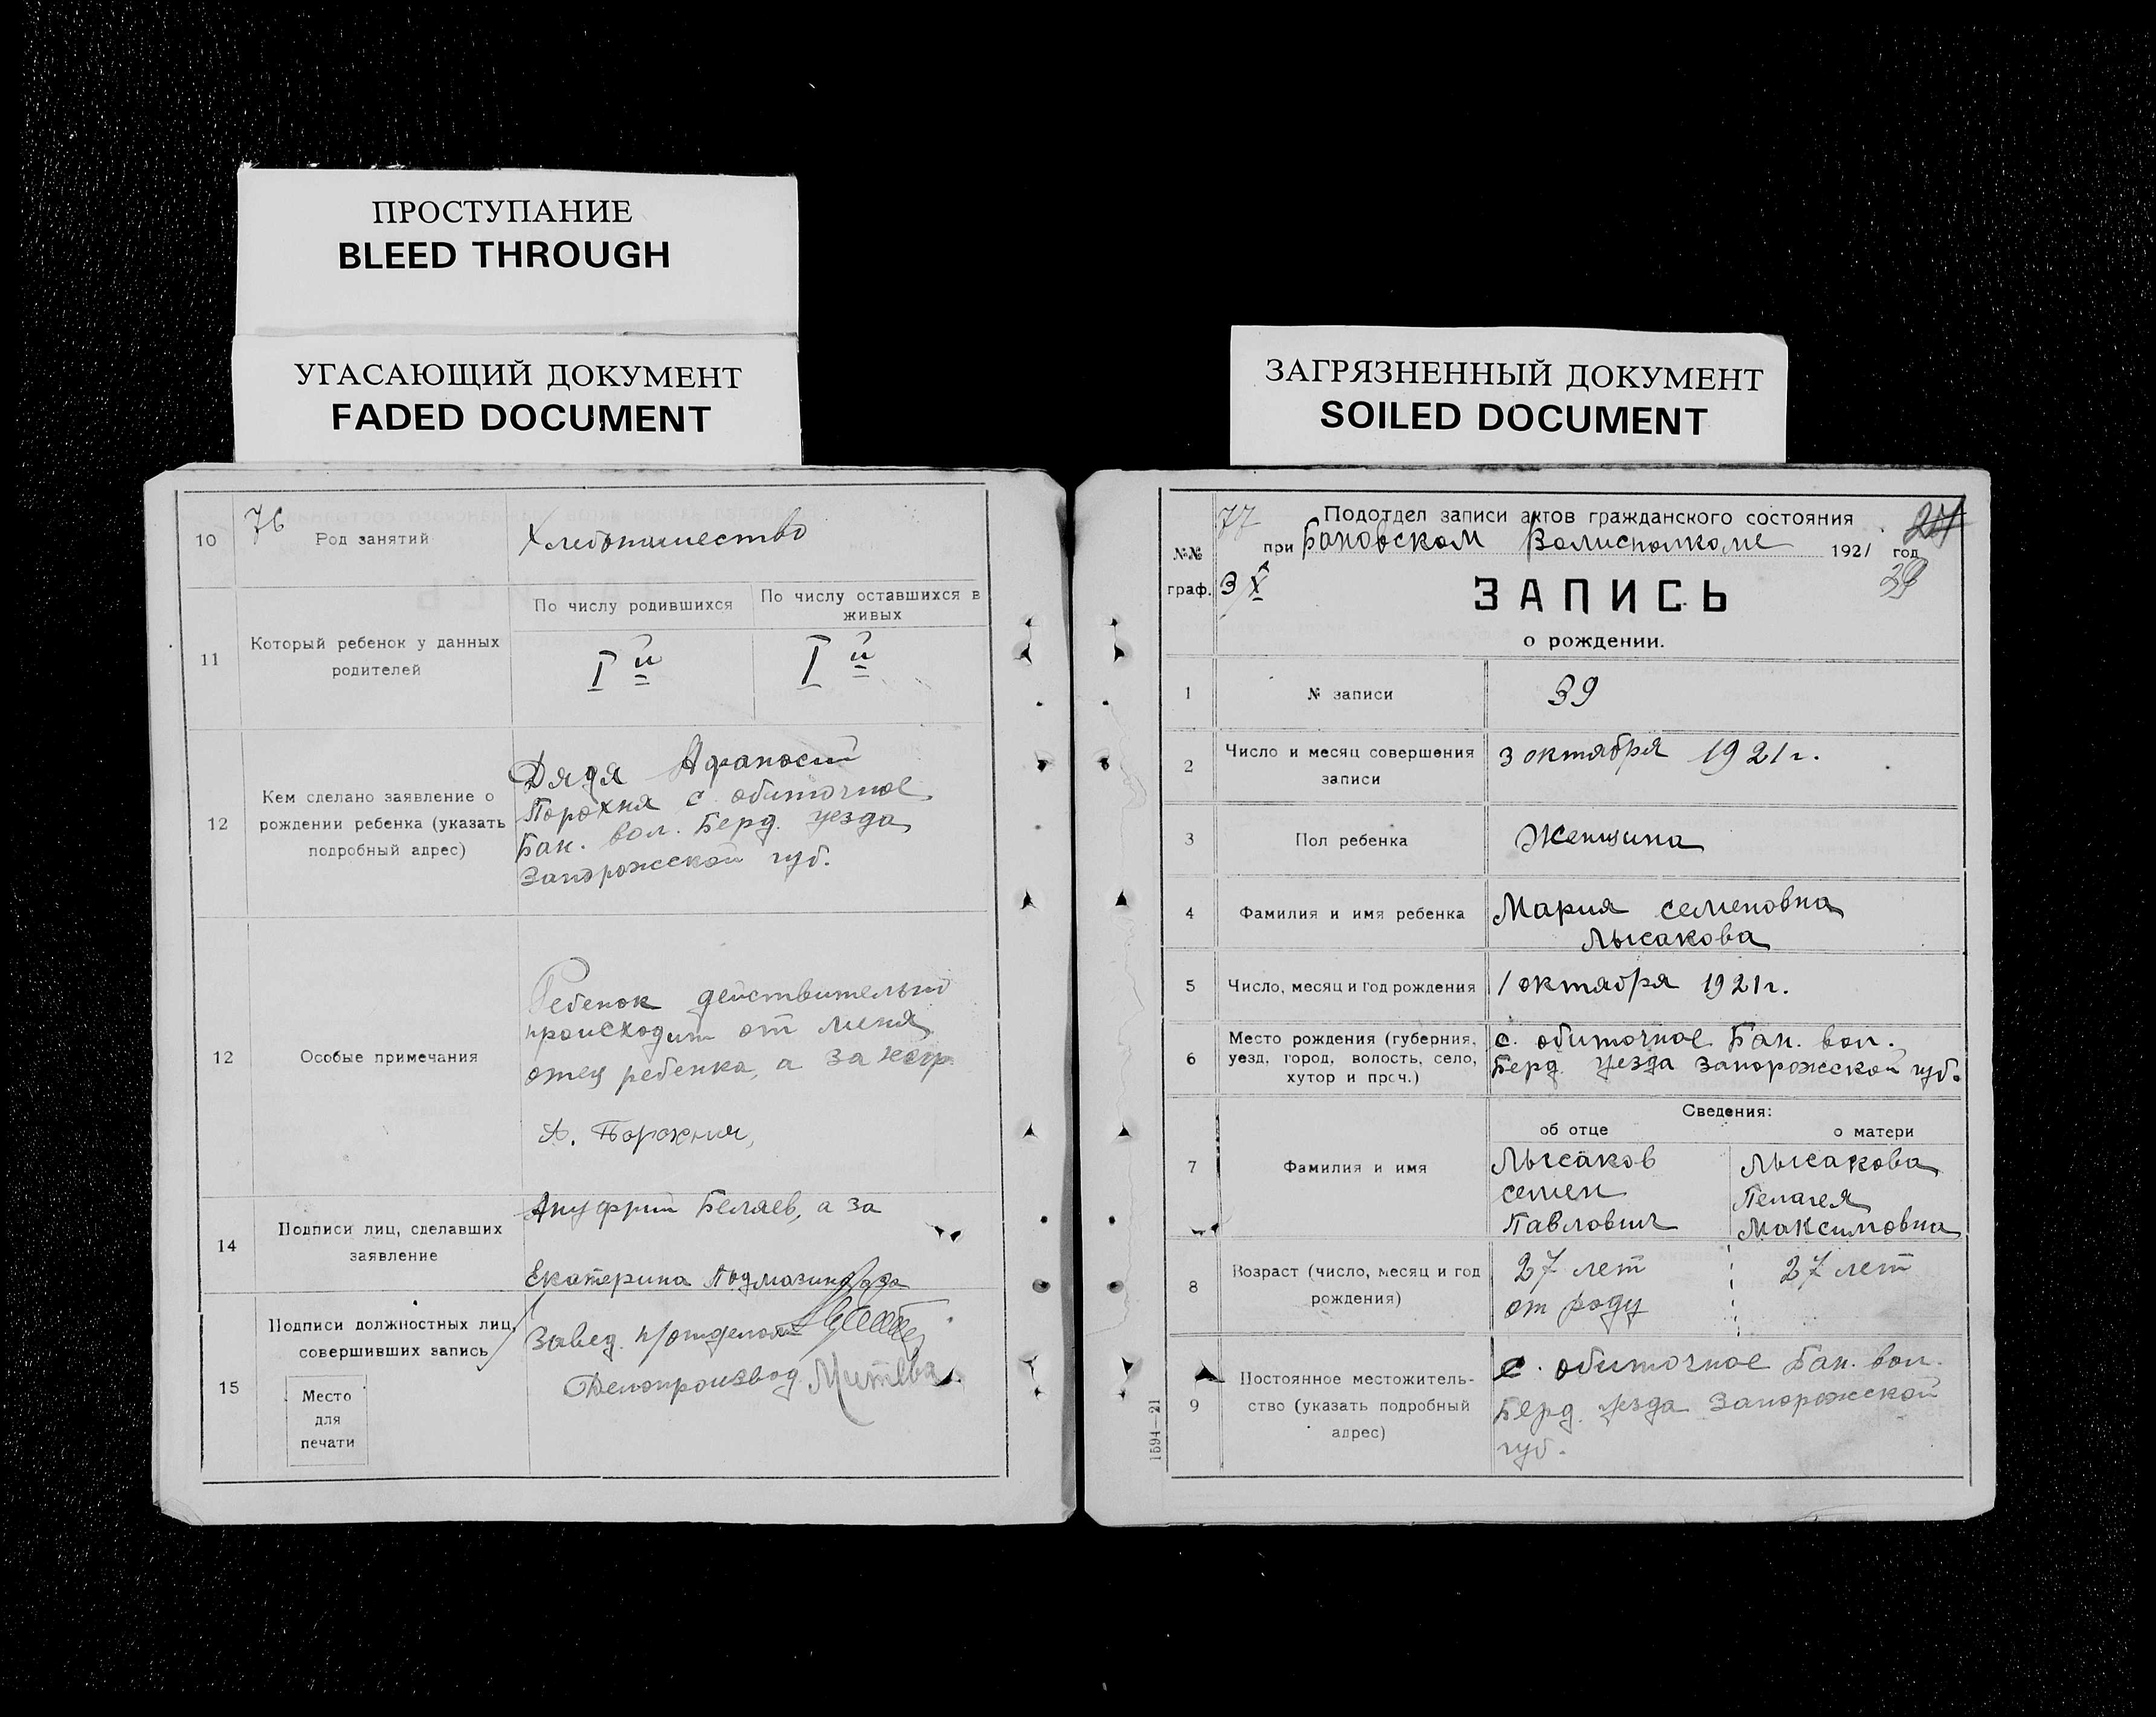 ПРОСТУПАНИЕ
BLEED THROUGH
УГАСАЮЩИЙ ДОКУМЕНТ
FADED DOCUMENT
76
10 Род занятий Хлебопашество
11 Который ребенок у данных родителей
По числу родившихся
По числу оставшихся в живых
I й
I й
12 Кем сделано заявление о
рождении ребенка (указать
подробный адрес)
Дядя Афанасий
Порохня с. обиточное
Бан. вол. Берд. уезда
Запорожской губ.
12 Особые примечания
Ребенок действительно
происходит от меня
отец ребенка, а за негр.
А. Порохня,
14 Подписи лиц, сделавших
заявление
Ануфрий Беляев, а за
Екатерина
15 Подписи должностных лиц,
совершивших запись
Место
для
печати
Завед. п/отделом
Делопроизвод.
ЗАГРЯЗНЕННЫЙ ДОКУМЕНТ
SOILED DOCUMENT
77
Подотдел записи актов гражданского состояния
№№
граф.
при Бановском Волисполкоме 1921 год
3/X
29
ЗАПИСЬ
о рождении.
1 № записи 39
2 Число и месяц совершения
записи
3 октября 1921 г.
3 Пол ребенка Женщина
4 Фамилия и имя ребенка Мария семеновна
Лысакова
5 Число, месяц и год рождения 1 октября 1921 г.
6 Место рождения (губерния,
уезд, город, волость, село,
хутор и проч.)
с. обиточное Бан. вол.
Берд. уезда Запорожской губ.
Сведения:
об отце
о матери
7 Фамилия и имя
Лысаков
семен
Павлович
Лысакова
Пелагея
Максимовна
8 Возраст (число, месяц и год
рождения)
27 лет
от роду
27 лет
9 Постоянное местожитель-
ство (указать подробный
адрес)
с. обиточное Бан. вол.
Берд. уезда Запорожской
губ.
1594—21